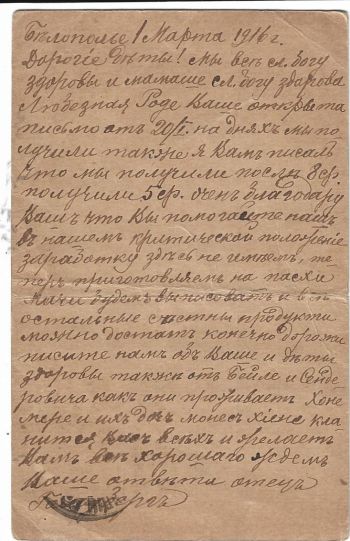 Бѣлополье 1 Марта 1916 г.
Дорогіе Дѣти! Мы всѣ сл. богу
здоровы и мамаше сл. богу здарова
Любезная Роде Ваше открыта
письмо отъ 20/I. на дняхъ мы по
лучили также я Вамъ писалъ
что мы получили послѣ 8 ср
получили 5 ср. очень благодарю
Вамъ что Вы помогаете намъ
въ нашемъ критической положеніе
заработку здѣсь не имѣемъ, те
перь приготовляемъ на пасхи
будемъ и всѣ
остальные продукти
можно достать конечно дорожи
писите намъ объ Ваше и дѣти
здоровы также отъ Бейле и Сенде
ровича какъ они проживаетъ Хоне
мере и ихъ кла
нится Васъ всѣхъ и желаетъ
Вамъ всѣ хорошаго ждемъ
Ваше отвѣта отецъ